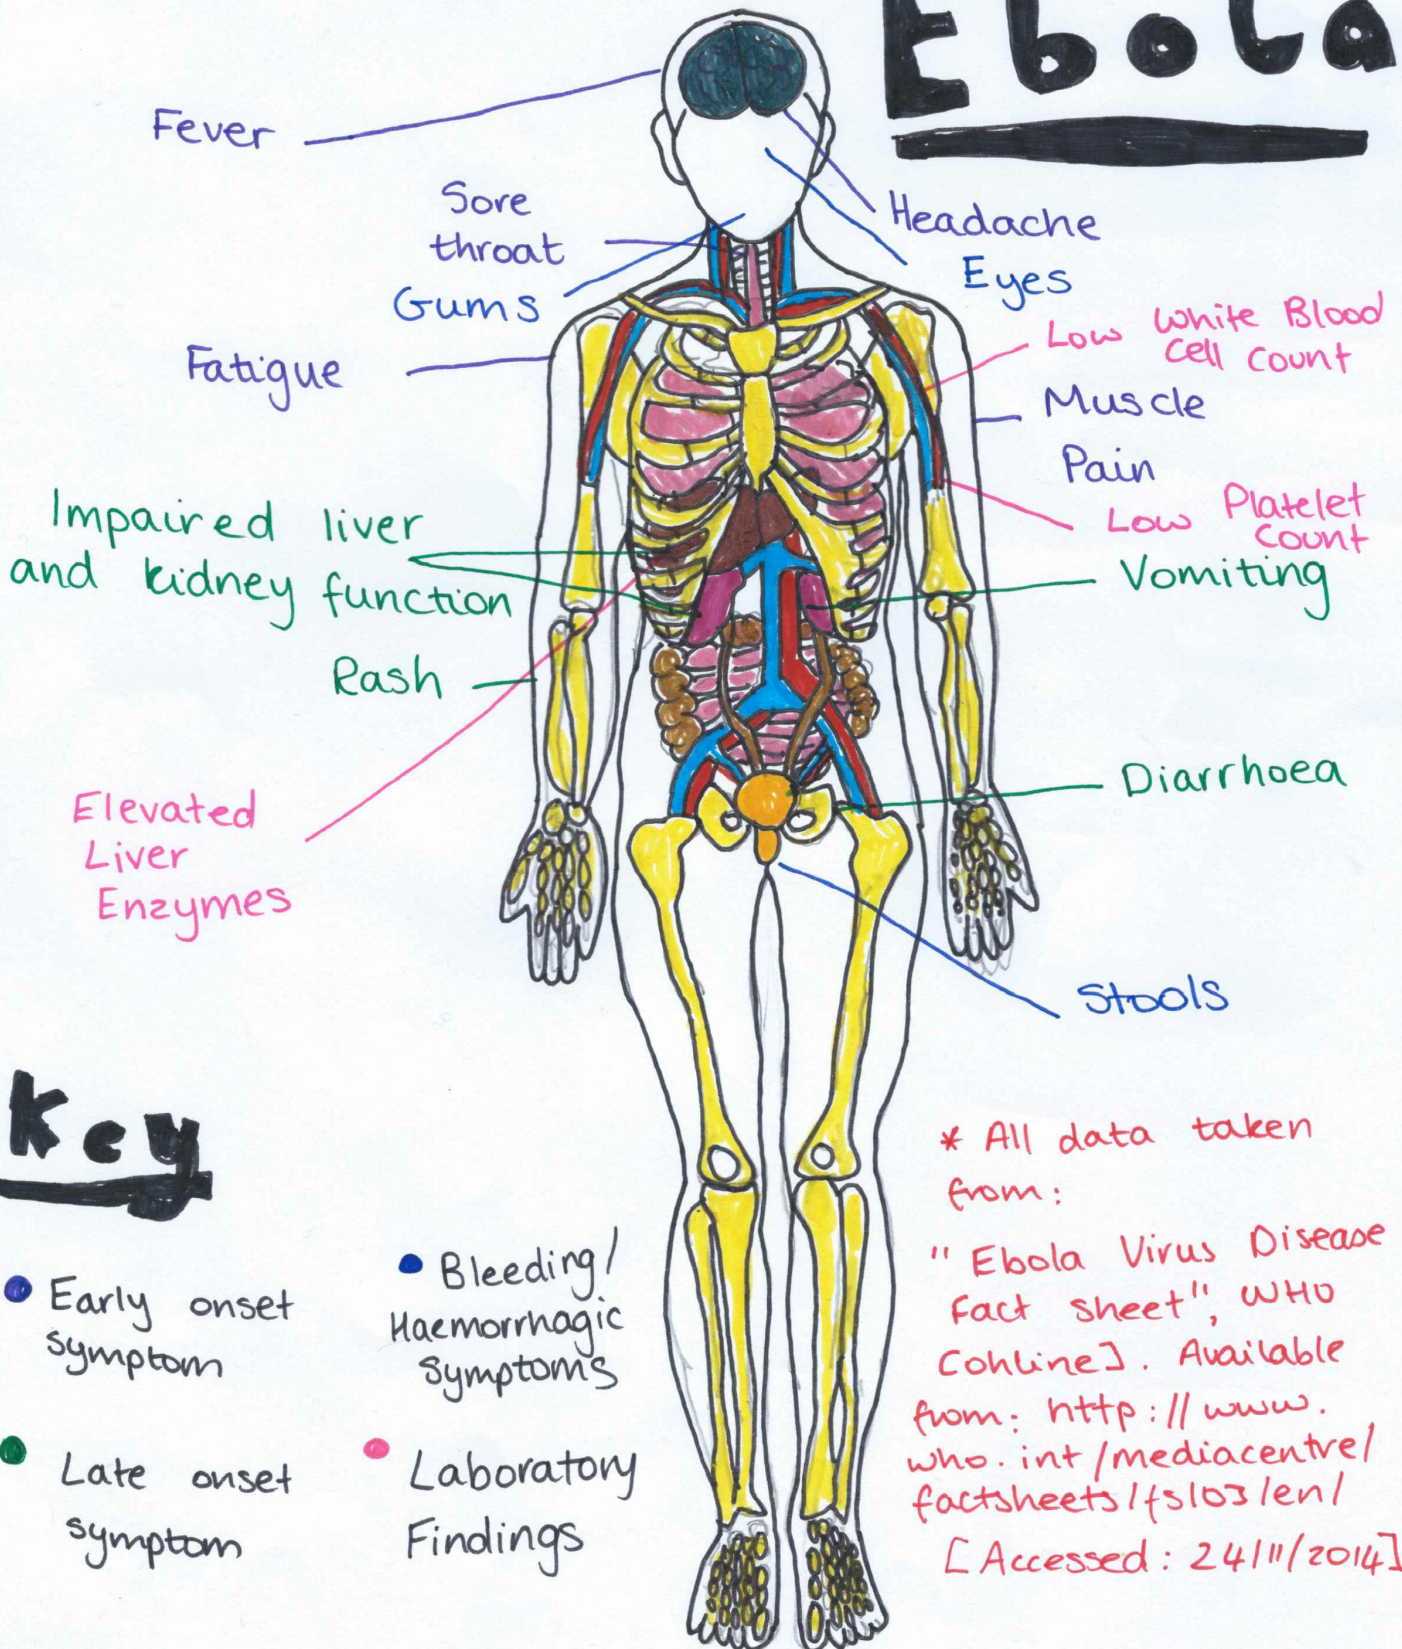 Ebola
Fever
Sore
throat
Gums
Headache
Eyes
Fatigue
Low White Blood
Cell Count
Muscle
Pain
Low Platelet
Count
Impaired liver
and kidney function
Vomiting
Rash
Diarrhoea
Elevated
Liver
Enzymes
Stools
Key
Early onset
symptom
Bleeding/
Haemorrhagic
Symptoms
Late onset
symptom
Laboratory
Findings
* All data taken
from:
"Ebola Virus Disease
Fact sheet", WHO
[online]. Available
from: http://www.
who.int/mediacentre/
factsheets/fs103/en/
[Accessed: 24/11/2014]